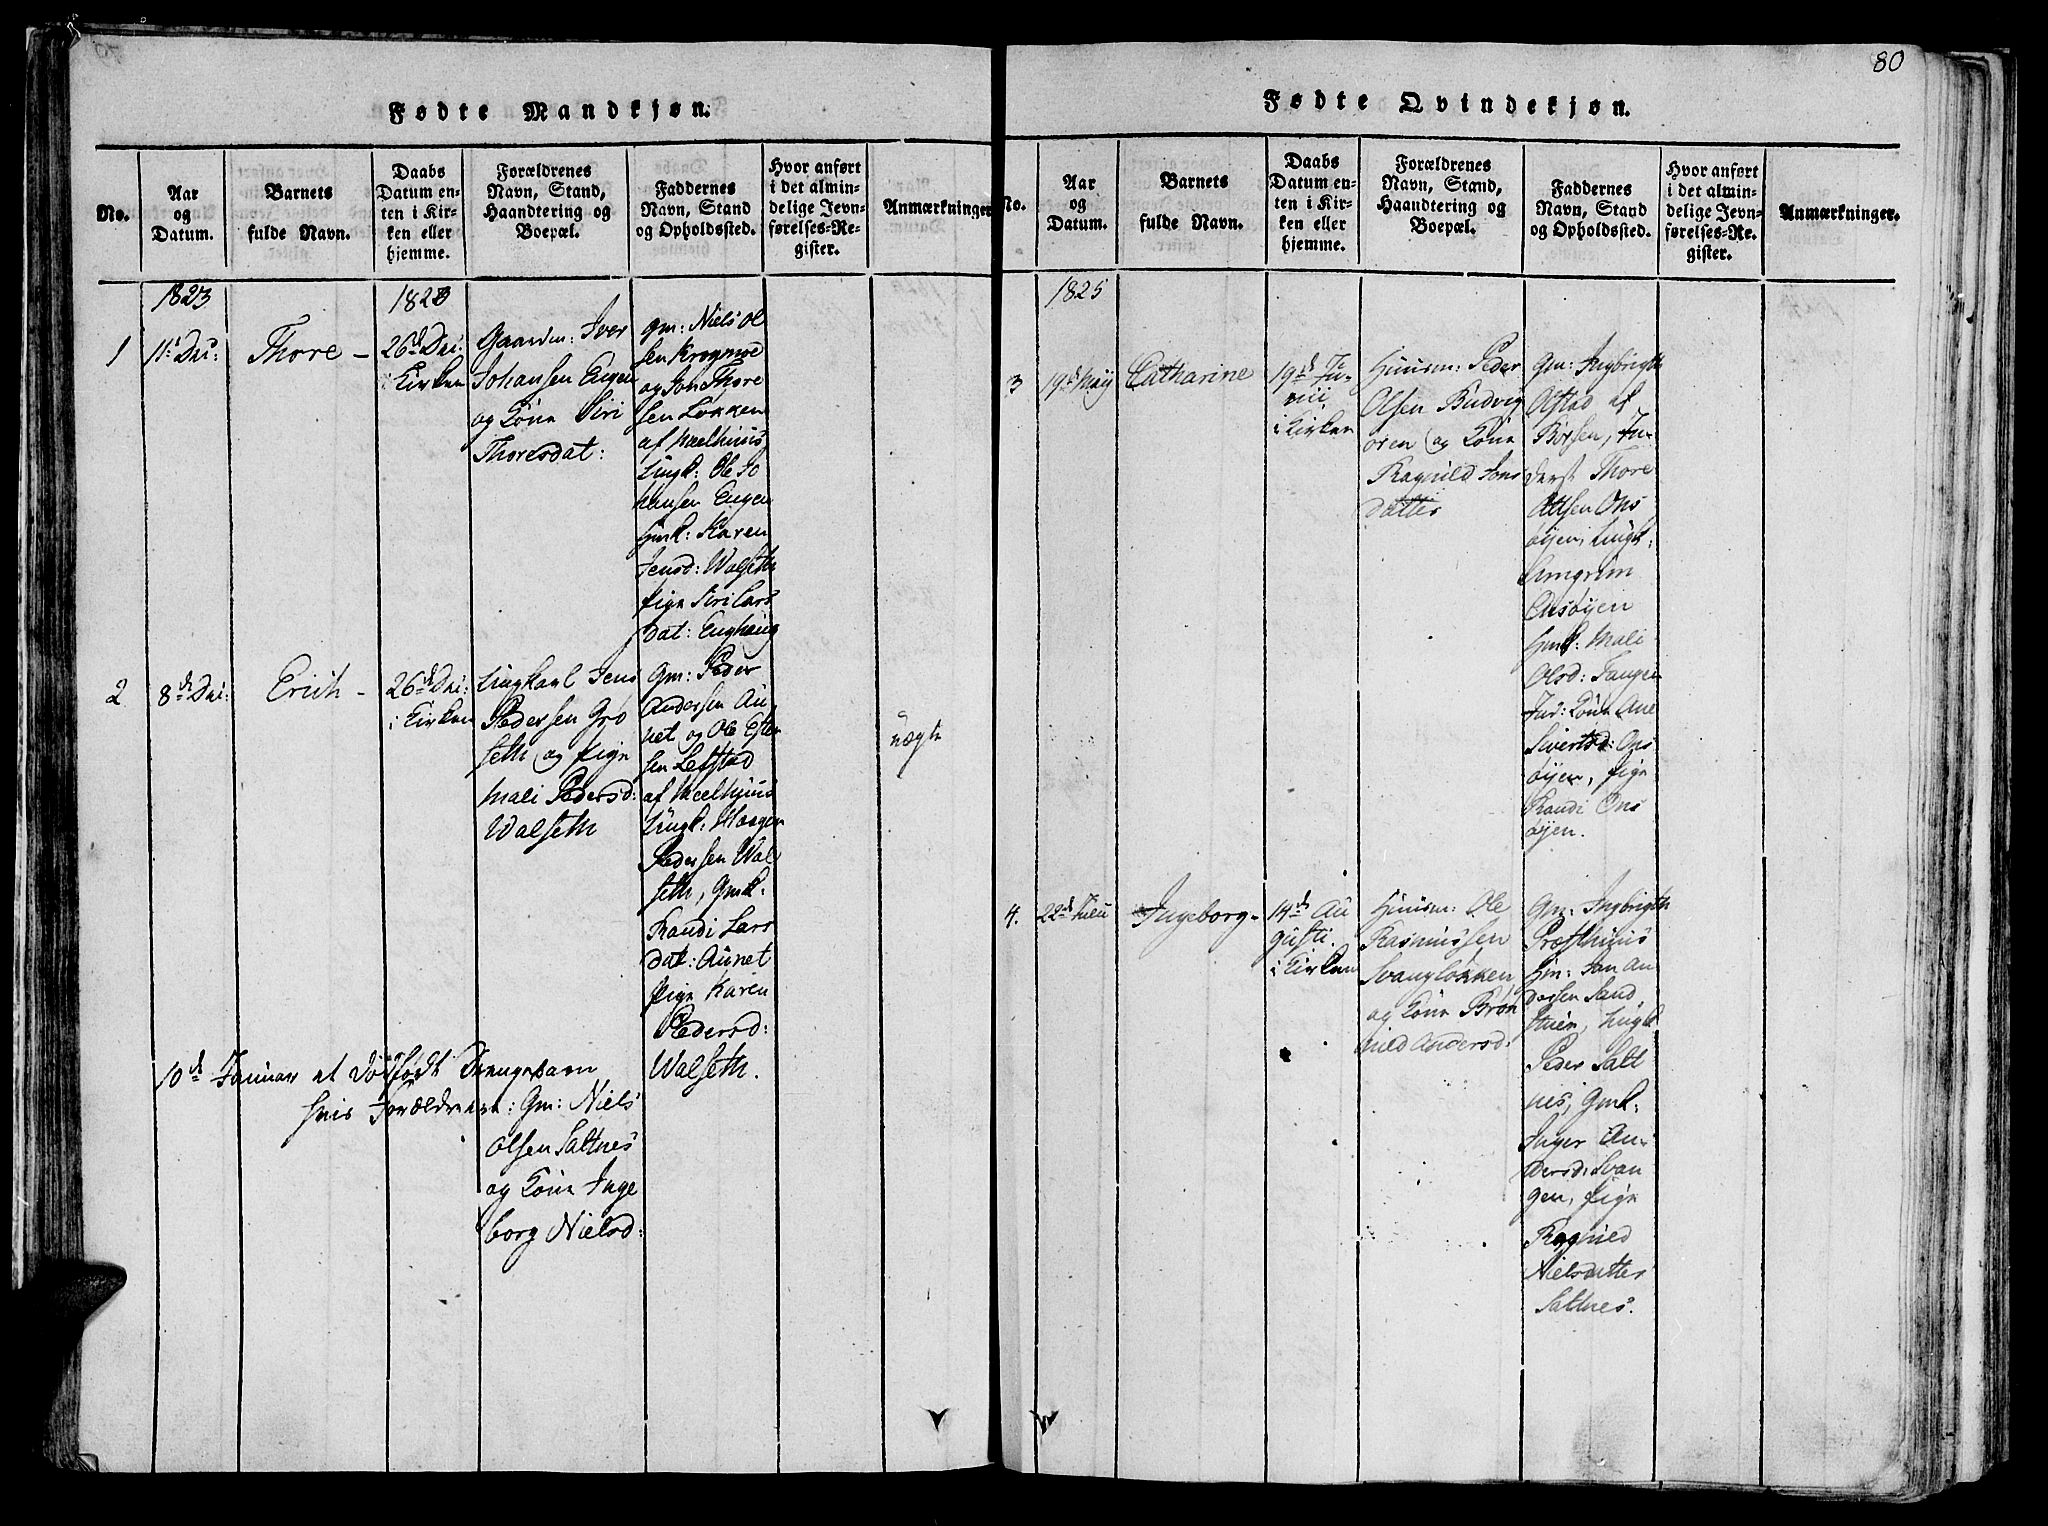 80
Fødte Mandkjøn.
No.
Aar
og
Datum.
Barnets
fulde Navn.
Daabs
Datum en-
ten i Kir-
ken eller
hjemme.
Forældrenes
Navn, Stand,
Haandtering og
Boepæl.
Faddernes
Navn, Stand
og Opholdssted.
Hvor anført
i det almin-
delige Jevn-
førelses-Re-
gister.
Anmærkninger
1823
1823
1
11: Dec:
Thore -
26d Dec:
i Kirken
Gaardm: Iver
Johansen Engen
og Kone Siri
Thoresdat:
Gm: Niels Ol
sen Krogmoe
og Jon Thore
sen Løkken
af Meelhuus
Ungk: Ole Jo
hansen Engen
Gmk: Karen
Jensd: Walseth
Pige Siri Lars
dat: Enghaug
2
8d Dec:
Erich -
26d Dec:
i Kirken
Ungkarl Jens
Pedersen Gro
seth og Pige
Mali Pedersd:
Walseth
Gm: Peder
Andersen Au
net og Ole Este
sen Lefstad
af Meelhuus
Ungk: Haagen
Pedersen Wal
seth, Gmk:
Randi Lars
dat: Aunet
Pige Karen
Pedersd:
Walseth.
uægte
10d Januar et dødfødt Drengebarn
hvis Forældre ere: Gm: Niels
Olsen Saltnes
og Kone Inge
borg Nielsd:
Fødte Qvindekjøn.
No.
Aar
og
Datum.
Barnets
fulde Navn.
Daabs
Datum en-
ten i Kir-
ken eller
hjemme.
Forældrenes
Navn, Stand,
Haandtering og
Boepæl.
Faddernes
Navn, Stand
og Opholdssted.
Hvor anført
i det almin-
delige Jevn-
førelses-Re-
gister.
Anmærkninger.
1825
3
19d May
Catharine
19d Ju-
nii
i Kirken
Huusm: Peder
Olsen Budvig
øren og Kone
Ragnild Jons
datter
Gm: Ingbrigth
Olstad af
Børsen, In-
derst Thore
Ottsen Ons
øyen, Ungk:
Arngrim
Onsøyen
Gmk: Mali
Olsd: Tangen
Ind: Kone Ane
Sivertsd: Ons
øyen, Pige
Randi Ons
øyen.
4.
22d Julii
Ingeborg -
14d Au
gusti.
i Kirken
Huusm: Ole
Rasmussen
Svangløkken
og Kone Brøn
nild Andersd:
Gm: Ingbrigth
Præsthuus
Hm: Jon An
dersen Sand
stuen, Ungk
Peder Salt
nes, Gmk:
Inger An-
dersd: Svan
gen, Pige
Ragnild
Nielsdatter
Saltnes.